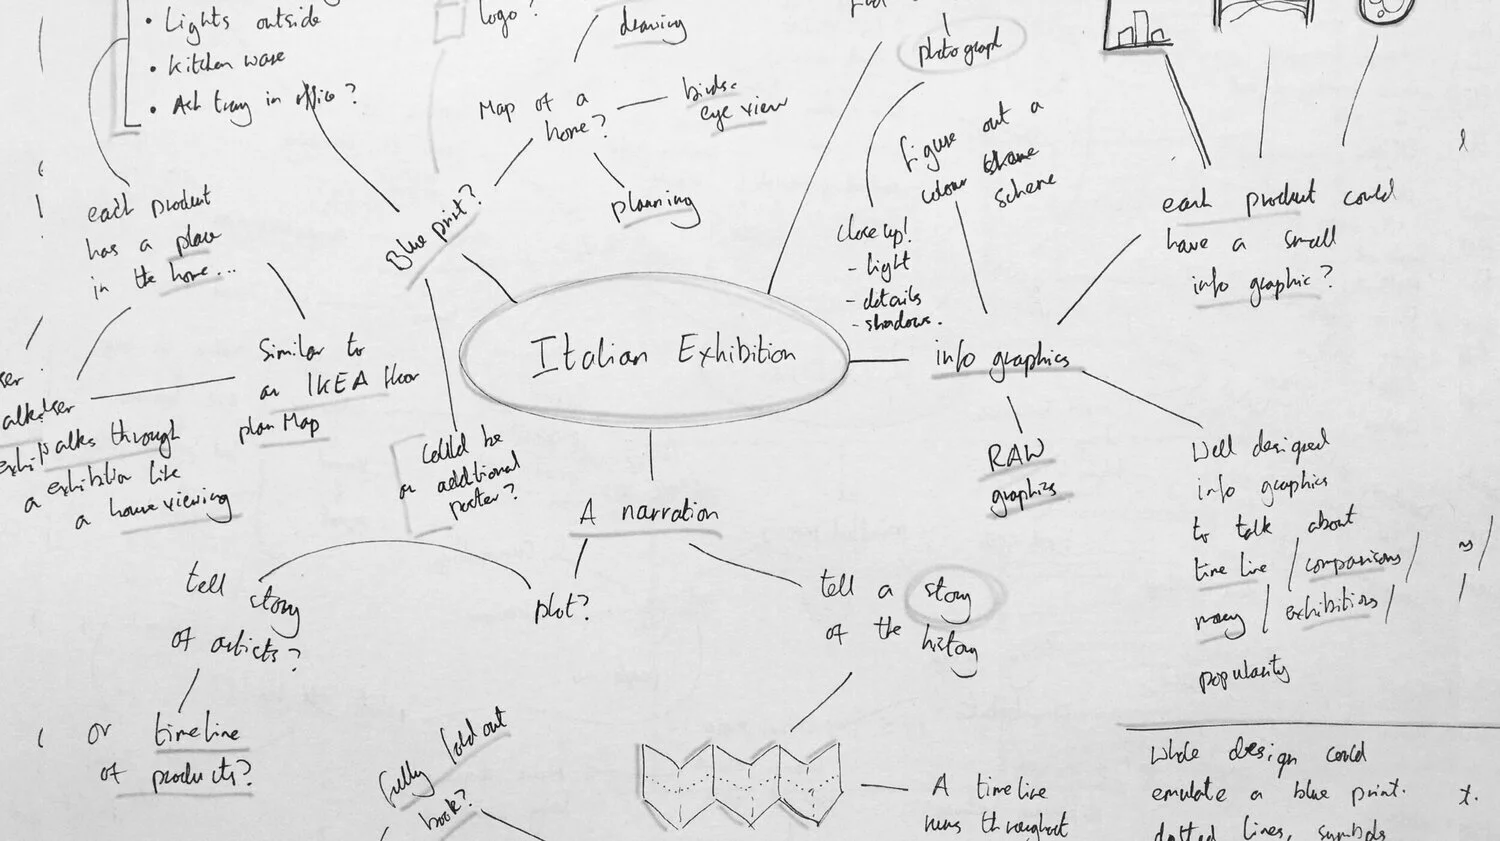 • Lights outside
• Kitchen ware
• Ash tray in office?
logo?
drawing
Map of a
home?
birds-
eye view
planning
Blue print?
photograph
close up!
- light
- details
- shadows.
figure out a
colour
scheme
each product could
have a small
info graphic?
each product
has a place
in the home...
Similar to
an IKEA floor
plan Map
through
a exhibition like
a house viewing
Italian Exhibition
info graphics
RAW
graphics
Well designed
info graphics
to talk about
time line / comparisons /
money / exhibitions /
popularity
could be
an additional
poster?
A narration
tell story
of artists?
plot?
tell a story
of the history
or timeline
of products?
fully fold out
book?
A timeline
runs throughout
Whole design could
emulate a blue print.
dotted lines, symbols